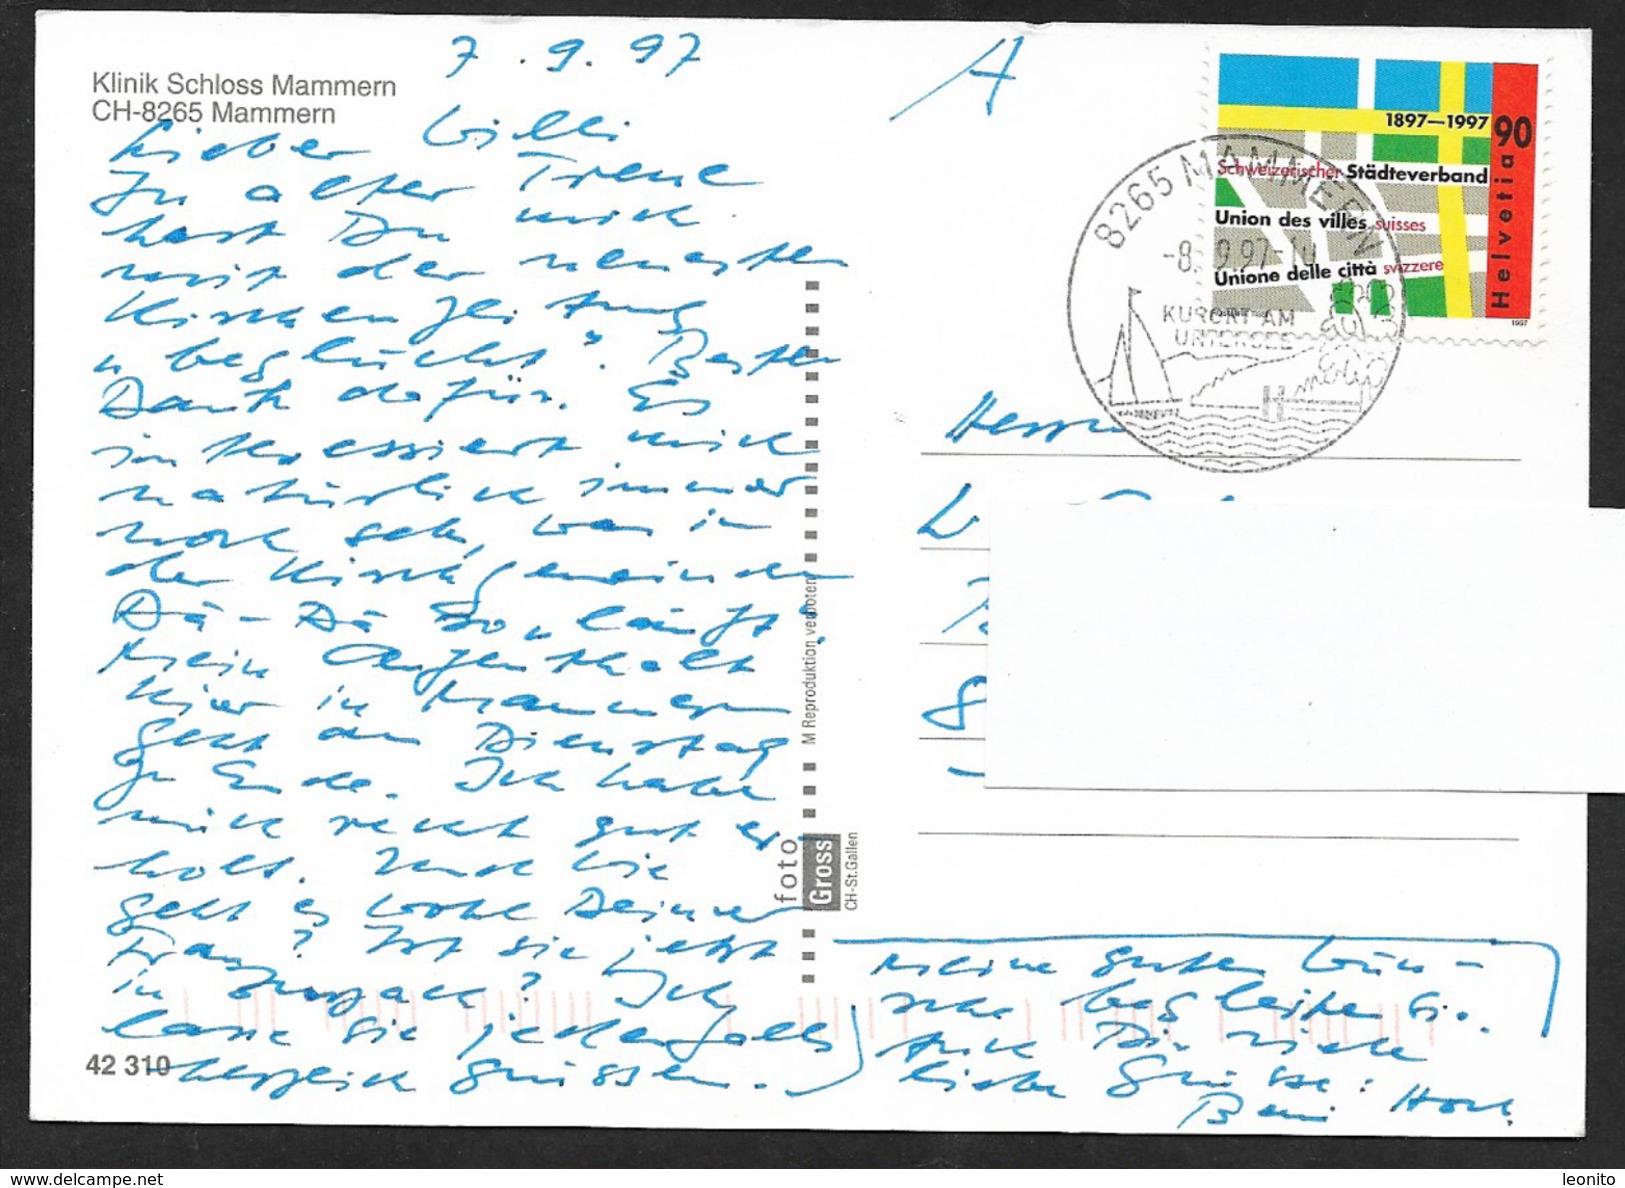 Klinik Schloss Mammern
CH-8265 Mammern
7.9.97
Lieber Willi
In alter Treue
hast Du mich
mit der neuesten
Kirchenzeitung
"beglückt". Besten
Dank dafür. Es
interessiert mich
natürlich immer
noch sehr, was in
der Kirchgemeinde
Dä-Dä so "läuft".
Mein Aufenthalt
hier in Mammern
geht am Dienstag
zu Ende. Ich habe
mich recht gut er-
holt. Und wie
geht es wohl Deiner
Frau? Ist sie jetzt
in ? Ich
lasse sie jedenfalls
herzlich grüssen.
Meine guten Wün-
sche begleiten sie.
Auch Dir viele
liebe Grüsse:
42 310
foto
Gross
CH-St.Gallen
M Reproduktion verboten
A
1897–1997 90
Schweizerischer Städteverband
Union des villes suisses
Unione delle città svizzere
Helvetia
1997
8265 MAMMERN
-8.9.97-10
KURORT AM
UNTERSEE
Herrn
leonito